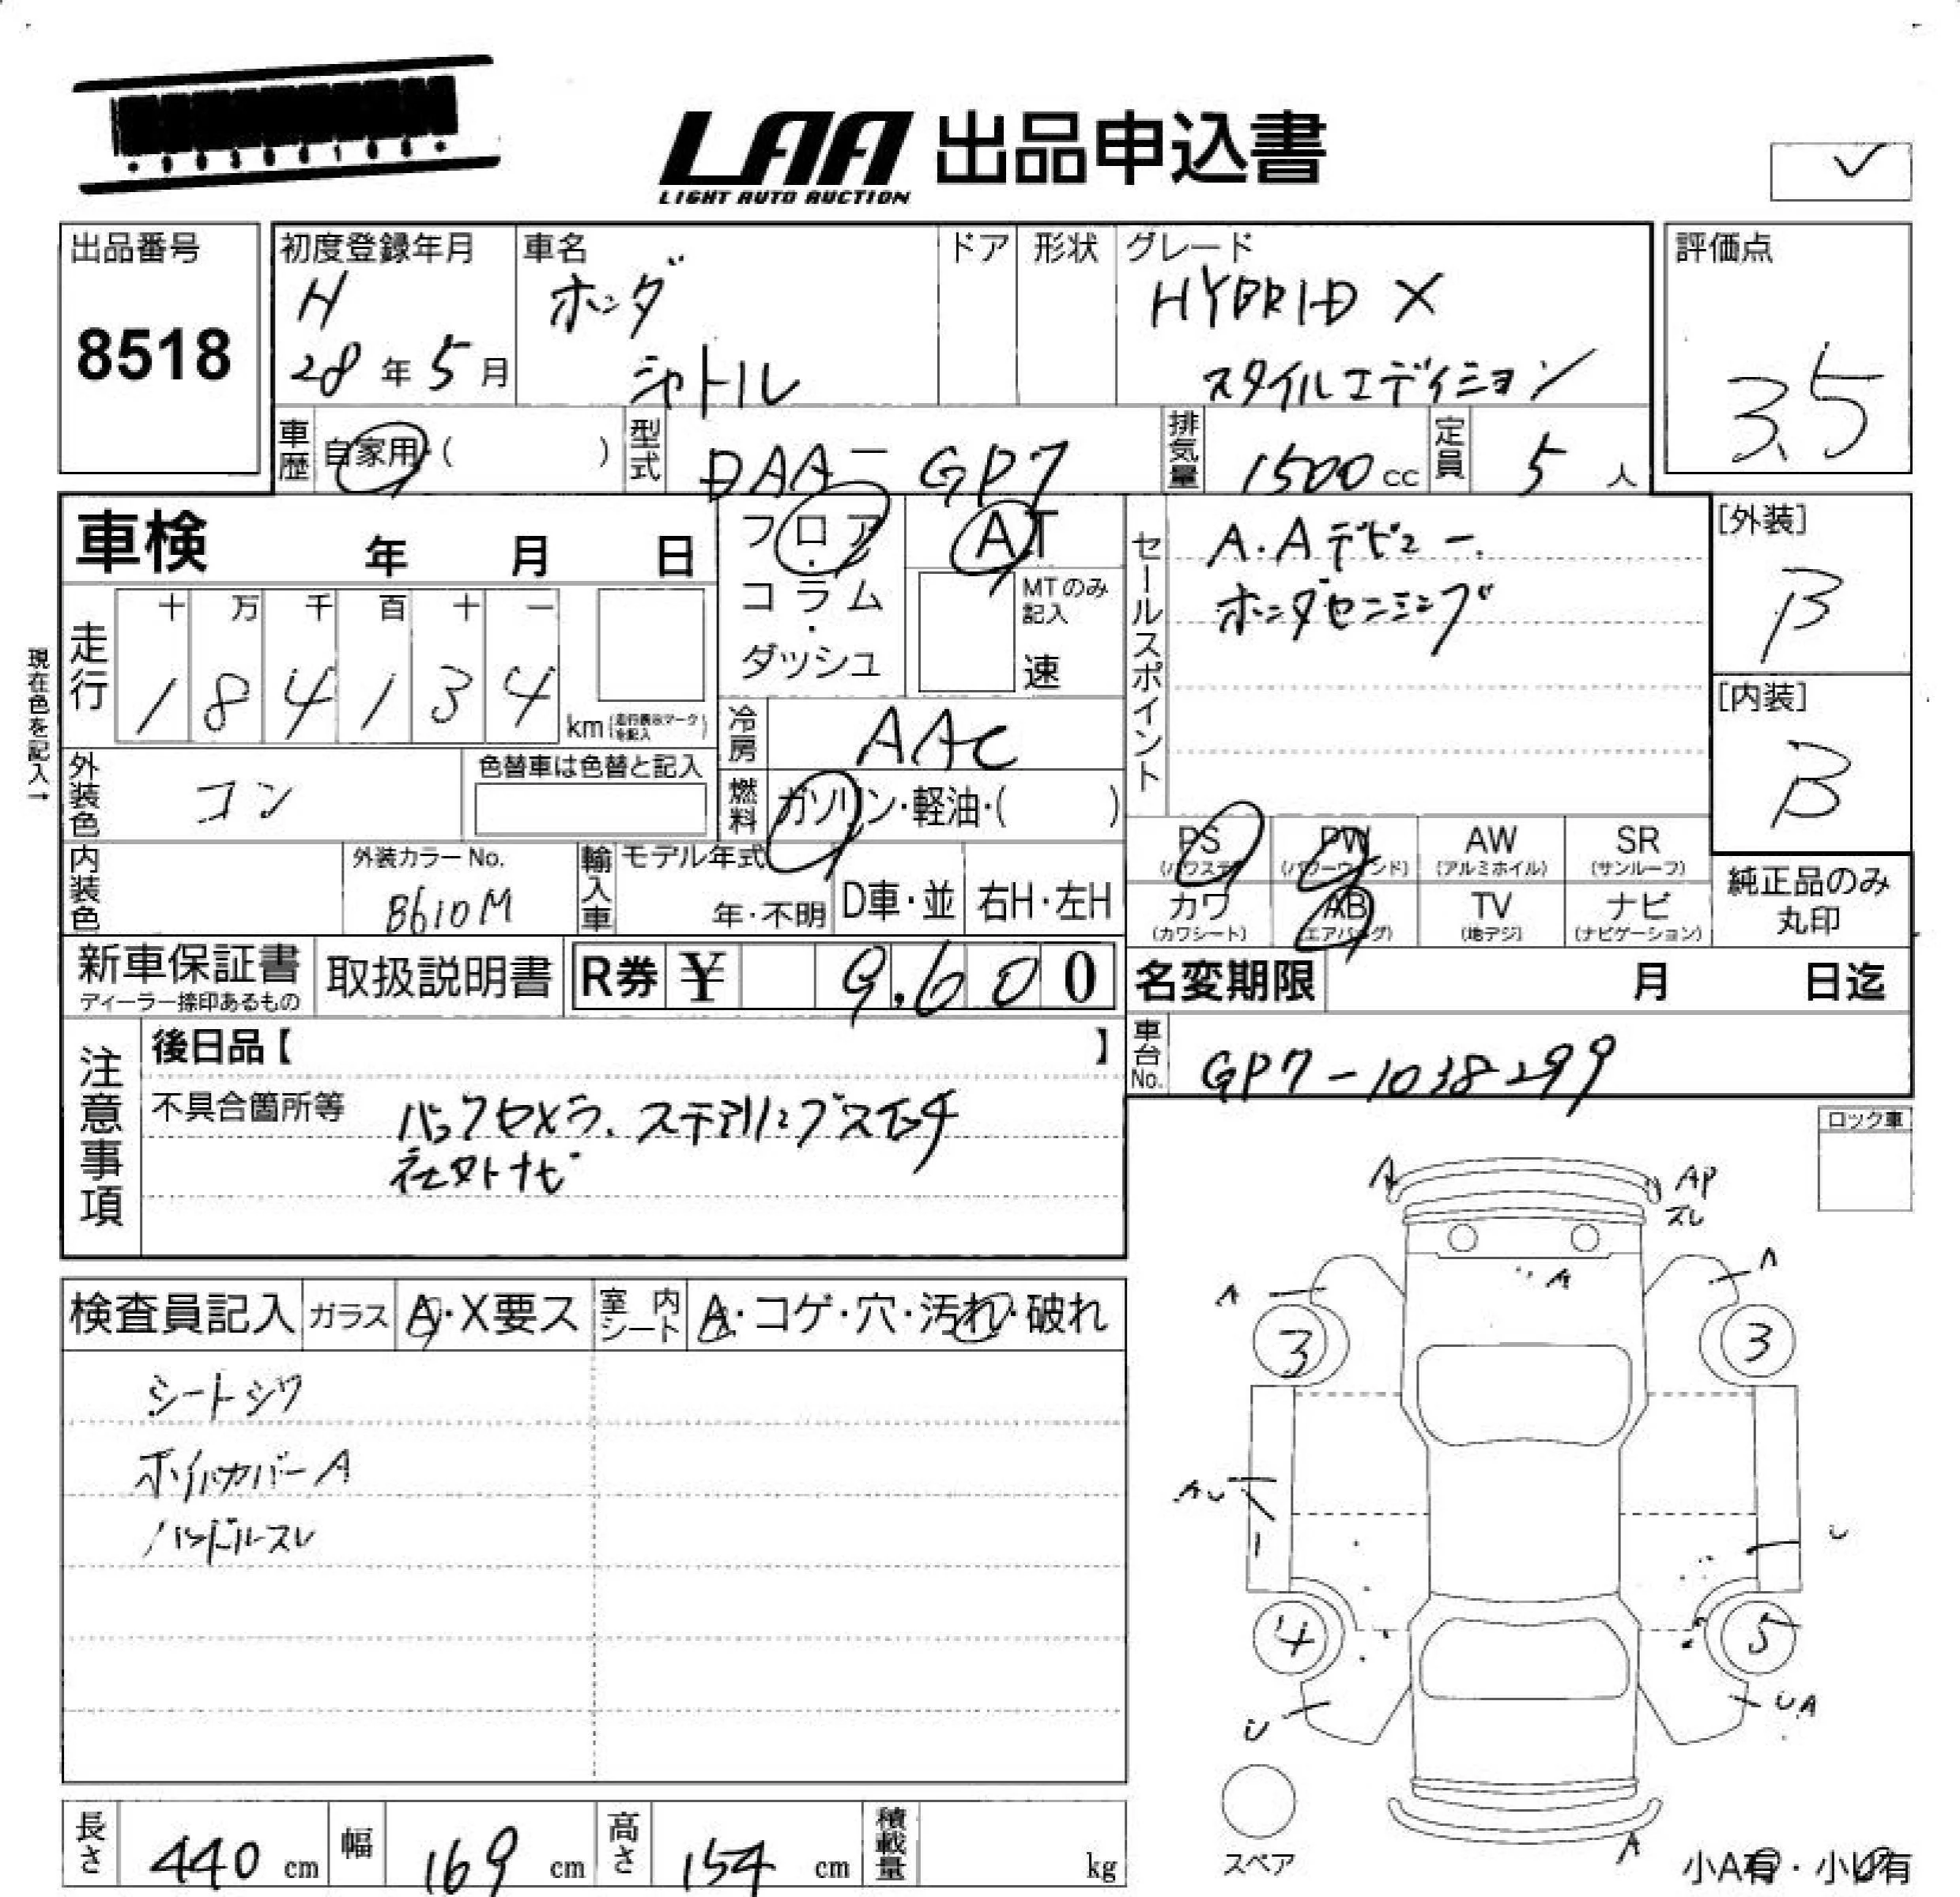 LAA 出品申込書
LIGHT AUTO AUCTION
出品番号
8518
初度登録年月
H
28年5月
車名
ホンダ
シャトル
ドア
形状
グレード
HYBRID X
スタイルエディション
評価点
3.5
車歴
自家用・( )
型式
DAA-GP7
排気量
1500cc
定員
5人
車検 年 月 日
フロア
・
コラム
・
ダッシュ
AT
MTのみ
記入
速
セールスポイント
A.Aデビュー.
ホンダセンシング
[外装]
B
[内装]
B
現在色を記入→
走行
十 万 千 百 十 一
1 8 4 1 3 4
km(走行表示マークを記入)
冷房
AAC
外装色
コン
色替車は色替と記入
燃料
ガソリン・軽油・( )
PS
(パワステ)
PW
(パワーウィンド)
AW
(アルミホイル)
SR
(サンルーフ)
カワ
(カワシート)
AB
(エアバッグ)
TV
(地デジ)
ナビ
(ナビゲーション)
純正品のみ
丸印
内装色
外装カラーNo.
B610M
輸入車
モデル年式
年・不明
D車・並
右H・左H
新車保証書
ディーラー捺印あるもの
取扱説明書
R券 ¥ 9,600
名変期限 月 日迄
車台No.
GP7-1038299
注意事項
後日品【 】
不具合箇所等
バックカメラ、ステアリングスイッチ
社外ナビ
ロック車
検査員記入
ガラス
A・X要ス
室内シート
A・コゲ・穴・汚れ・破れ
シートシワ
ハンドルスレ
A
AP
スレ
A
A
A
3
3
AU
U
4
5
U
UA
A
スペア
小A有・小U有
長さ
440cm
幅
169cm
高さ
154cm
積載量
kg